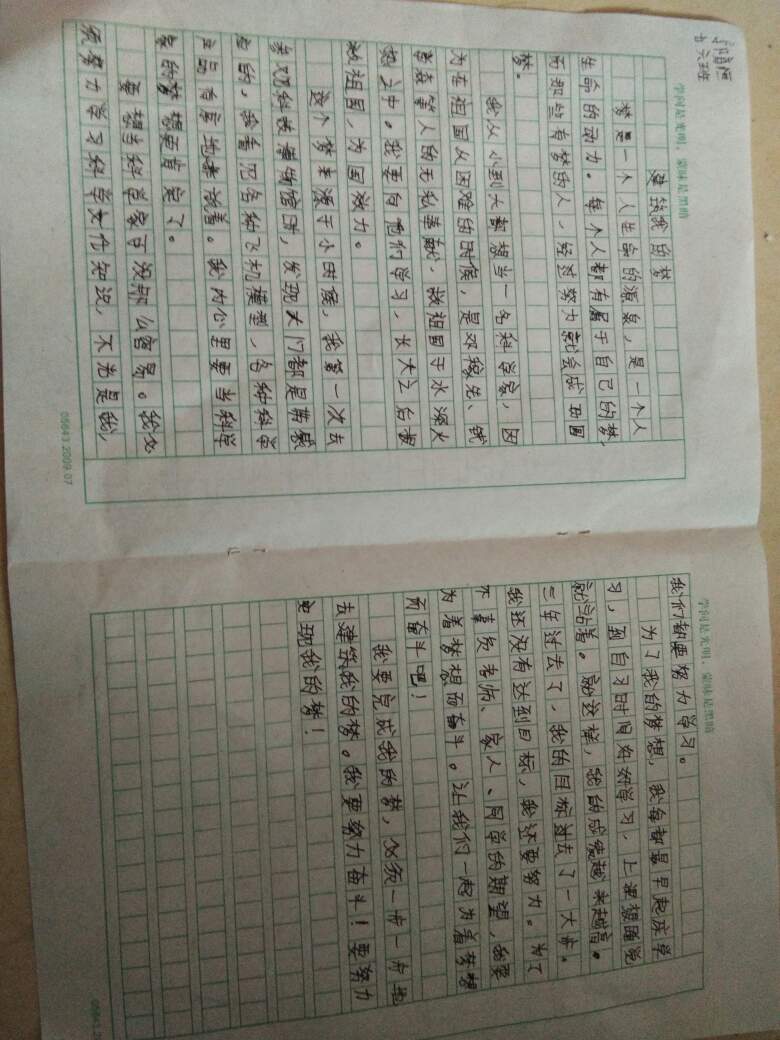 七六班
学问是光明，蒙昧是黑暗
建筑我的梦
梦是一个人生命的源泉，是一个人
生命的动力。每个人都有属于自己的梦，
而那些有梦的人，经过努力就会成功圆
梦。
我从小到大都想当一名科学家，因
为在祖国从困难的时候，是邓稼先、钱
学森等人的无私奉献，救祖国于水深火
热之中。我要向他们学习，长大之后报
效祖国，为国效力。
这个梦来源于小时候，我第一次去
参观科技博物馆时，发现大门都是带感
应的，我看见各种飞机模型，各种科学
产品有家地著活着。我内心里要当科学
家的梦想更肯定了。
要想当科学家可没那么容易。我必
须努力学习科学文化知识，不光是我，
05643 2009.07
学问是光明，蒙昧是黑暗
我们都要努力学习。
为了我的梦想，我每都是早起床学
习，到自习时间好好学习，上课想睡觉
就站着。就这样，我的成绩越来越高。
三年过去了，我的目标过去了一大半。
我还没有达到目标，我还要努力。为了
不辜负老师、家人、同学的期望，我要
为着梦想而奋斗。让我们一起为着梦想
而奋斗吧！
我要完成我的梦，必须一步一步地
去建筑我的梦。我要努力奋斗！要努力
实现我的梦！